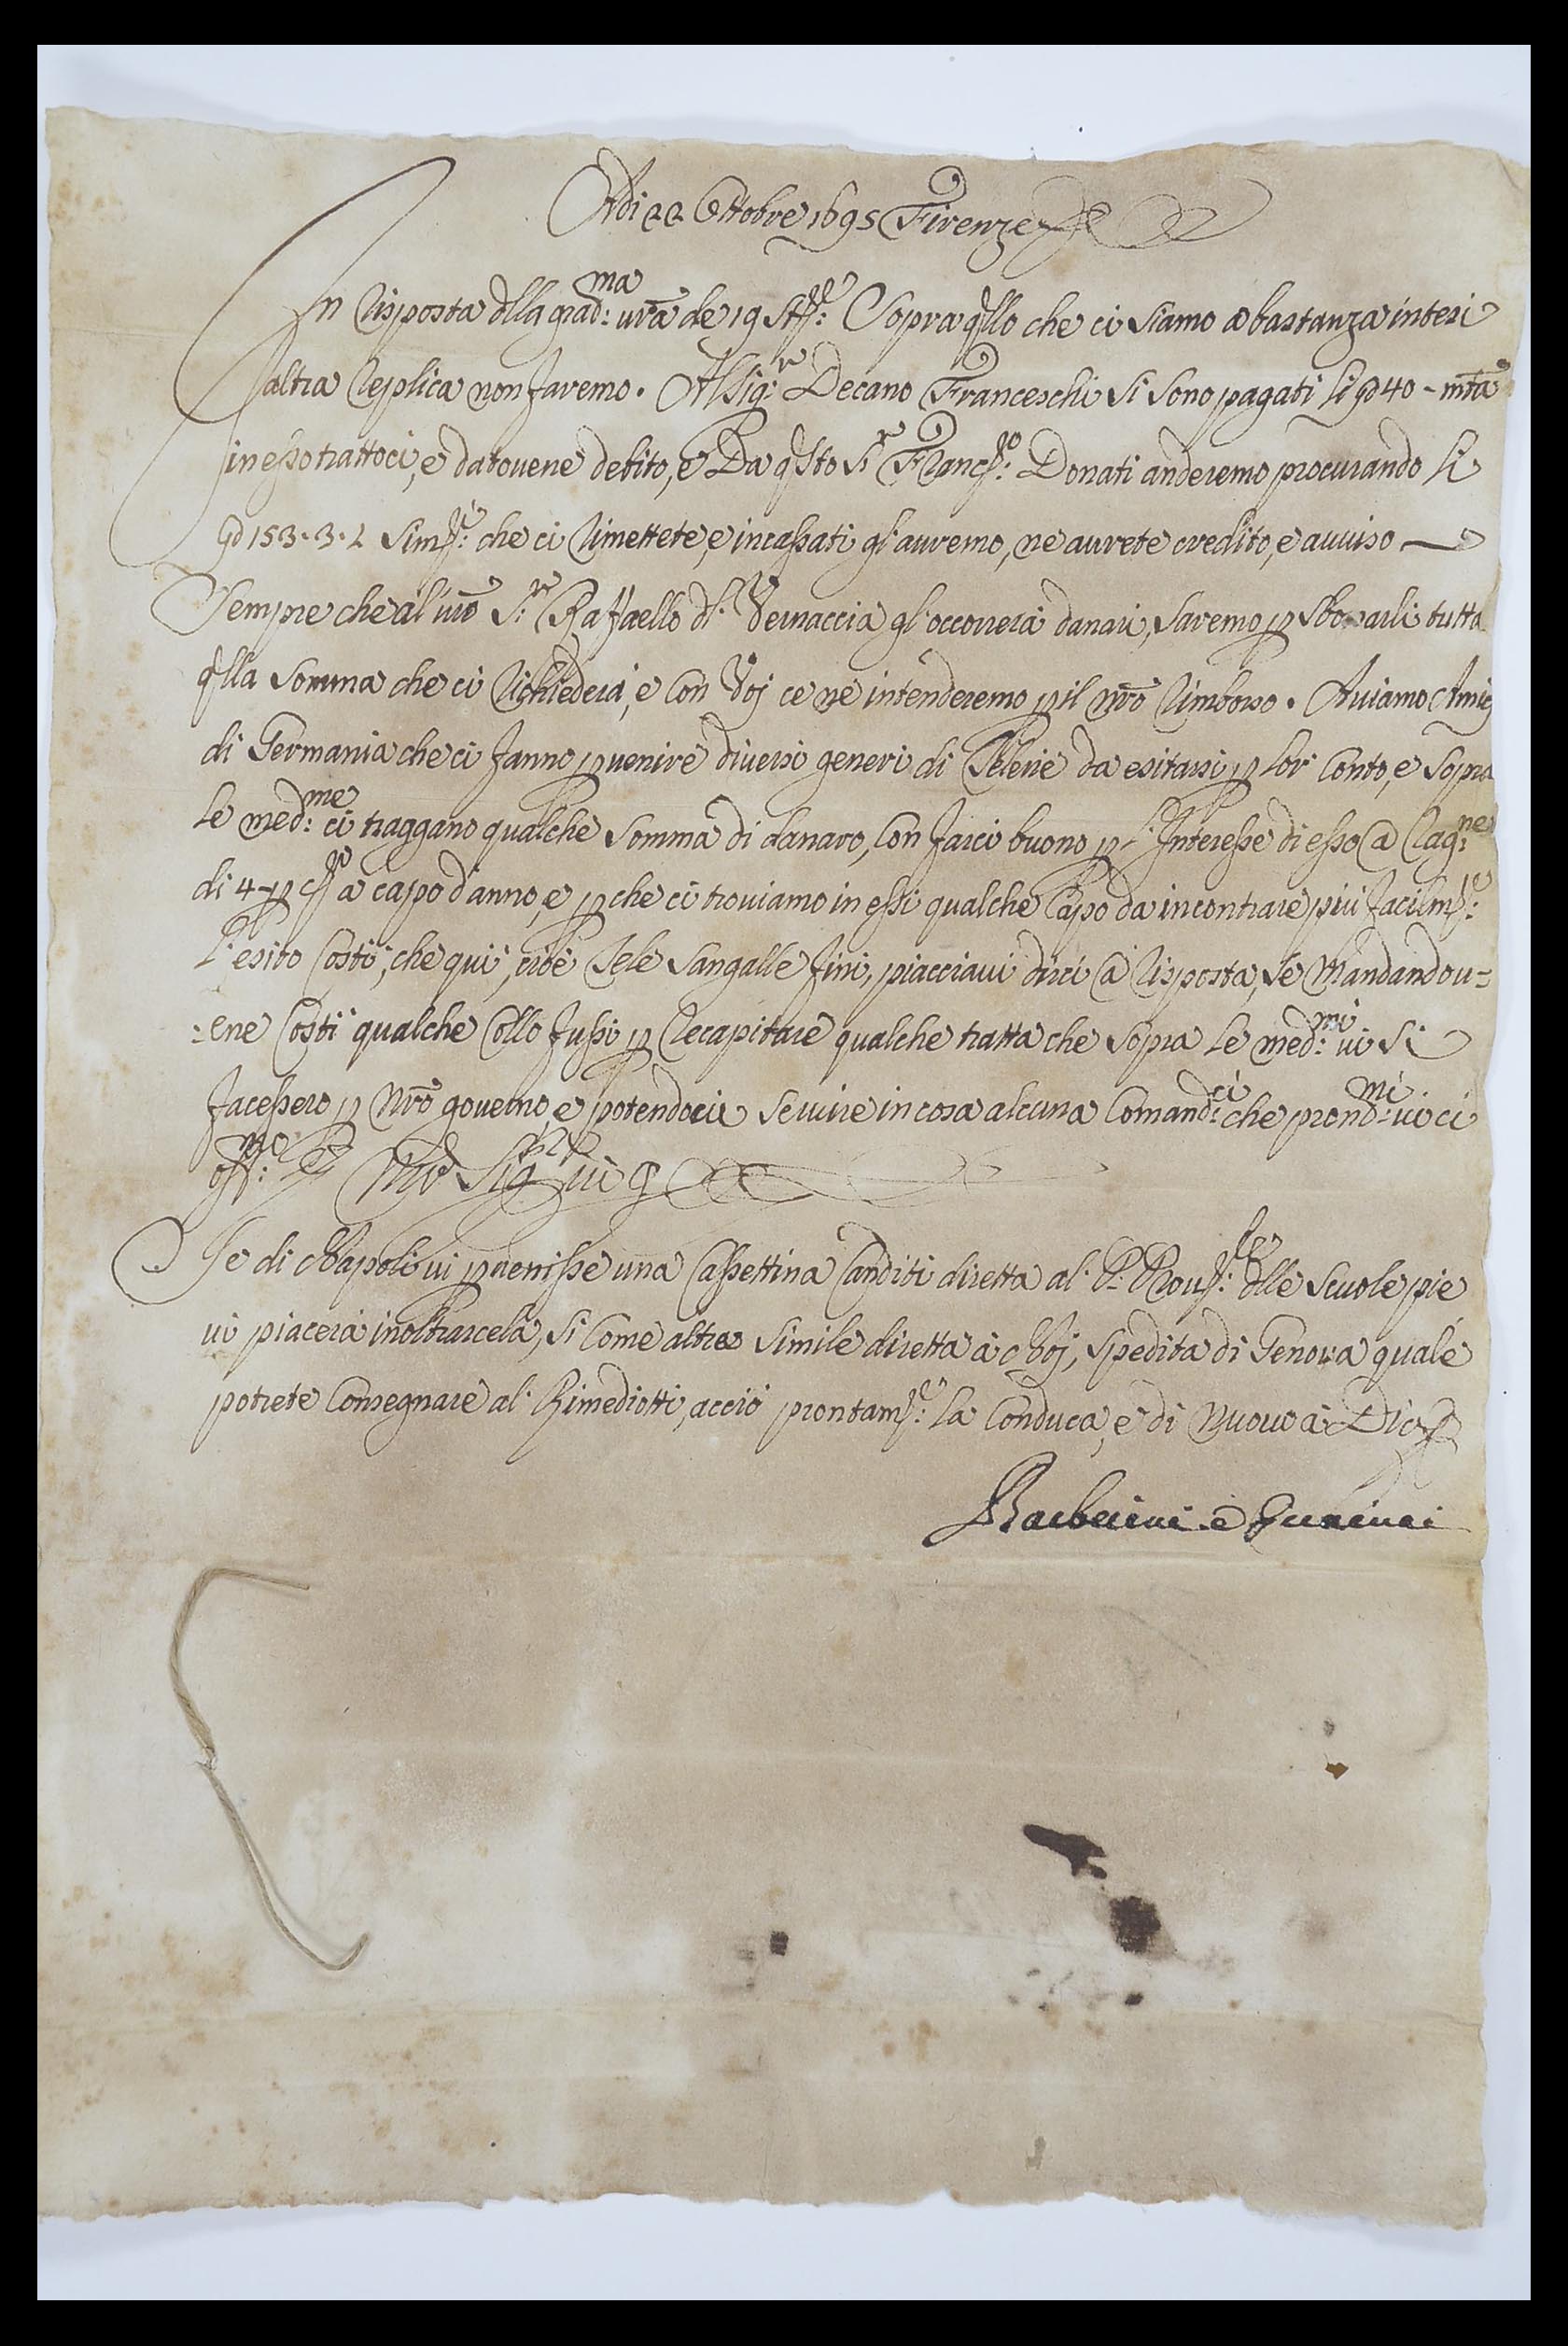 Adi 22 Ottobre 1695 Firenze
In risposta dlla grad:ma vr̃a de 19 stte: Sopra qllo che ci siamo abastanza intesi
altra replica non faremo. Al Sig:r Decano Franceschi si sono pagati li 40 - mta
in esso trattoci, e datovene debito, e Da qsto S:r Francco: Donati anderemo procurando li
153.3.2 simte: che ci rimettete, e incassati gl'auremo, ne aurete credito, e auuiso
Sempre che al vr̃o S:r Raffaello dl. Vernaccia gl'occorrerà danari, saremo p sborsarli tutta
qlla somma che ci richiederà, e con Voj ce ne intenderemo p il nr̃o rimborso. Auiamo Amici
di Germania che ci fanno pvenire diversi generi di Telerie da esitarsi p lor Conto, e sopra
le med:me ci traggano qualche somma di danaro, con farci buono p l'Interesse di esso a rag:ne
di 4 - p cto a capo d'anno, e pche ci troviamo in essi qualche Capo da incontrare più facilmte:
l'esito costì, che qui, cioè Tele Sangalle fini, piacciaui dirci a risposta, se mandandou=
=ene Costì qualche Collo fussi p recapitare qualche tratta che sopra le med:mi ui si
facessero p nr̃o gouerno, e potendoci seruire in cosa alcuna Comand:ci che pron:mi ui ci
off:mo
Se di Napoli ui pvenisse una Cassettina Canditi diretta al P. Prou:le dlle Scuole pie
ui piacerà inoltrarcela, si come altra simile diretta à Voj, spedita di Genova quale
potrete Consegnare al Rimediotti, acciò prontamte: la Conduca, e di nuouo à Dio
Barberini e